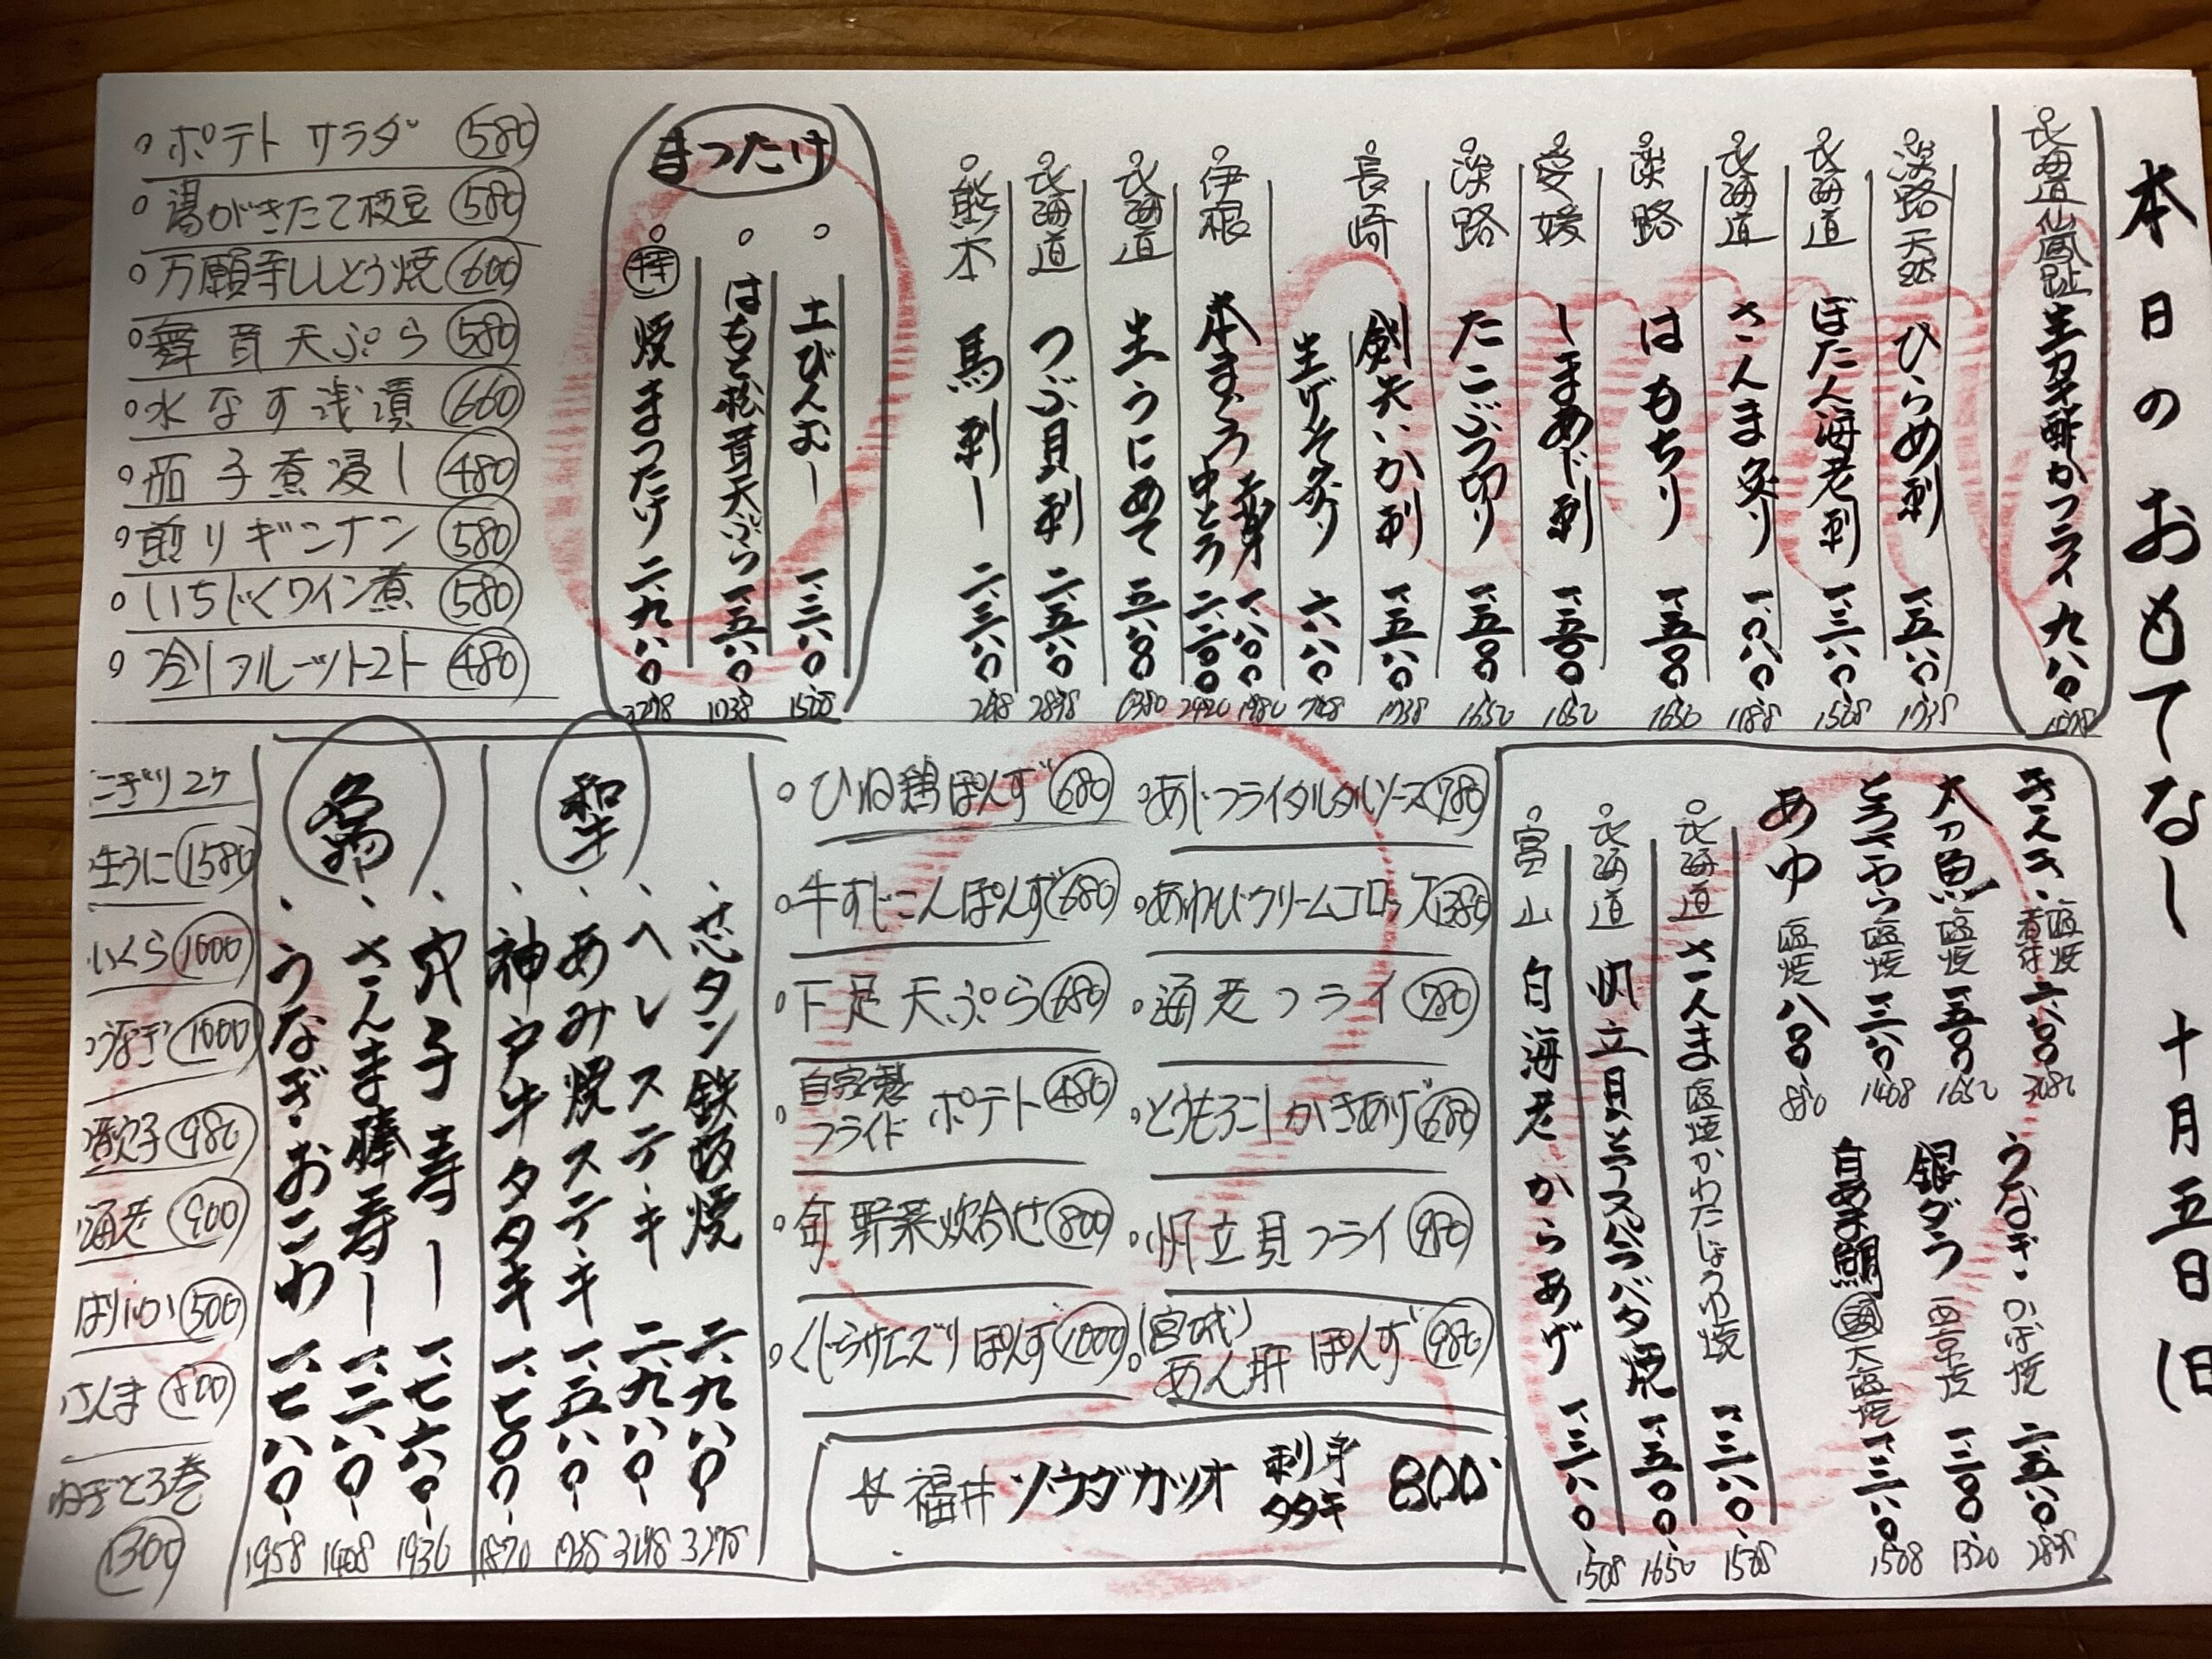 本日のおもてなし 十月五日(日
北海道仙鳳趾 生カキ酢かフライ 九八〇 1078
淡路天然 ひらめ刺 一、五八〇 1738
北海道 ぼたん海老刺 一、三八〇 1508
北海道 さんま炙り 一、〇八〇 1188
淡路 はもちり 一、五〇〇 1650
愛媛 しまあじ刺 一、五〇〇 1650
淡路 たこぶつ切り 一、五〇〇 1650
長崎 剣先いか刺 一、五八〇 1738
生げそ炙り 六八〇 748
伊根 本まぐろ 上身 一、八〇〇 1980
中とろ 二、二〇〇 2420
北海道 生うにめて 五、八〇〇 6380
北海道 つぶ貝刺 二、五八〇 2838
熊本 馬刺し 二、三八〇
まつたけ
土びんむし 一、三八〇 1508
はもと松茸天ぷら 一、五八〇 1738
特 焼まつたけ 二、九八〇 3278
ポテトサラダ 580
湯がきたて枝豆 580
万願寺ししとう焼 600
舞茸天ぷら 580
水なす浅漬 660
茄子煮浸し 480
煎りギンナン 580
いちじくワイン煮 580
冷しフルーツトマト 480
きんき 塩焼 煮付 二、八〇〇 3080
太刀魚 塩焼 一、五〇〇 1650
とろさわら 塩焼 一、二八〇 1408
あゆ 塩焼 八〇〇 880
うなぎ かば焼 二、五八〇 2838
銀ダラ 西京焼 一、二〇〇 1320
白あま鯛 大塩焼 一、三八〇 1508
北海道 さんま塩焼かわたじょうゆ焼 一、三八〇 1508
北海道 帆立貝とアスパラバタ焼 一、五〇〇 1650
富山 白海老からあげ 一、三八〇 1508
あじフライタルタルソース 780
あわびクリームコロッケ 1380
海老フライ 780
とうもろこしかきあげ 680
帆立貝フライ 980
(宮城) あん肝ぽんず 980
ひね鶏ぽんず 680
牛すじこんぽんず 680
下足天ぷら 680
自家製フライドポテト 480
旬野菜炊合せ 800
くじらサエズリぽんず 1000
☆福井 ソウダカツオ 刺身 タタキ 800
和牛
芯タン鉄板焼 二、九八〇 3278
ヘレステーキ 二、九八〇 3278
あみ焼ステーキ 一、五八〇 1738
神戸牛タタキ 一、七〇〇 1870
穴子寿し 一、七六〇 1936
さんま棒寿し 一、二八〇 1408
うなぎおこわ 一、七八〇 1958
にぎり2ケ
生うに 1580
いくら 1000
うなぎ 1000
煮穴子 980
海老 900
はりいか 500
さんま 500
ねぎとろ巻 1300